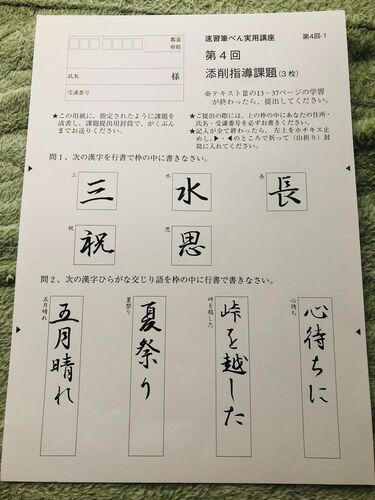 都道
府県
氏名
様
受講番号
速習筆ぺん実用講座
第4回-1
第4回
添削指導課題(3枚)
※テキストⅢの13~37ページの学習
が終わったら、提出してください。
★この用紙に、指定されたように課題を
清書し、課題提出用封筒で、がくぶん
までお送りください。
★ご提出の際には、上の枠の中にあなたの住所・
氏名・受講番号を必ずお書きください。
★記入が全て終わったら、左上をホチキス止
めし、▶・◀のところで折って(山折り)封
筒に入れてください。
問1、次の漢字を行書で枠の中に書きなさい。
三
三
水
水
長
長
祝
祝
思
思
問2、次の漢字ひらがな交じり語を枠の中に行書で書きなさい。
心待ち
心待ちに
峠を越した
峠を越した
夏祭り
夏祭り
五月晴れ
五月晴れ